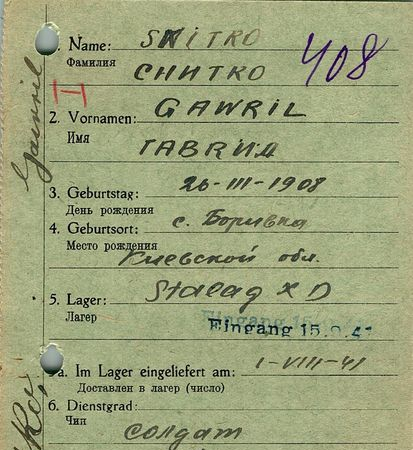 1. Name: SNITKO
Фамилия СНИТКО
408
2. Vornamen: GAWRIL
Имя ГАВRИЛ
3. Geburtstag: 26-III-1908
День рождения
4. Geburtsort: с. Боривка
Место рождения Киевской обл.
5. Lager: Stalag X D
Лагер
Eingang 15.
Eingang 15.9.41
5a. Im Lager eingeliefert am: 1-VIII-41
Доставлен в лагер (число)
6. Dienstgrad:
Чин солдат
Gawril